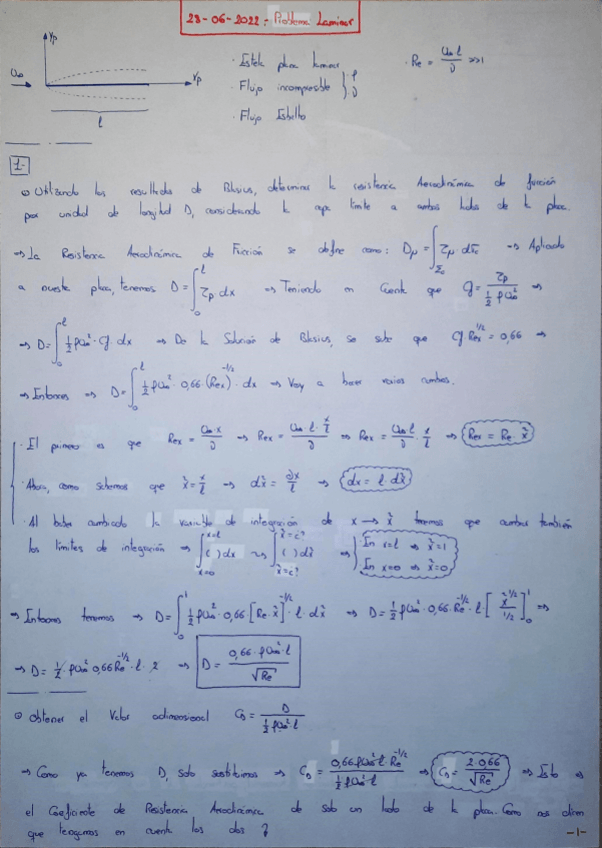 23-06-2022: Problema Laminar
yp
U∞
xp
l
· Estela placa laminar
· Flujo incompresible } ρ
ν
· Flujo Esbelto
· Re = U∞·l/ν >>1
1-
Utilizando los resultados de Blasius, determinar la resistencia Aerodinámica de fricción
por unidad de longitud D, considerando la capa límite a ambos lados de la placa.
⇒ La Resistencia Aerodinámica de Fricción se define como: Dμ = ∫ τp · dσ ⇒ Aplicado
a nuestra placa, tenemos D = ∫₀ˡ τp · dx ⇒ Teniendo en cuenta que Cf = τp / ½ρU∞² ⇒
⇒ D = ∫₀ˡ ½ρU∞² · Cf · dx ⇒ De la Solución de Blasius, se sabe que Cf Rex^1/2 = 0,66 ⇒
⇒ Entonces ⇒ D = ∫₀ˡ ½ρU∞² · 0,66 · (Rex)^-1/2 · dx ⇒ Voy a hacer varios cambios.
· El primero es que Rex = U∞·x/ν ⇒ Rex = U∞·l/ν · x/l ⇒ Rex = U∞·l/ν · x/l ⇒ Rex = Re · x̃
· Ahora, como sabemos que x̃ = x/l ⇒ dx̃ = dx/l ⇒ dx = l · dx̃
· Al haber cambiado la variable de integración de x → x̃ tenemos que cambiar también
los límites de integración ⇒ ∫ x=0 x=l ( ) dx ⇒ ∫ x̃=¿? x̃=¿? ( ) dx̃ ⇒ { En x=l ⇒ x̃=1
En x=0 ⇒ x̃=0
⇒ Entonces tenemos ⇒ D = ∫₀¹ ½ρU∞² · 0,66 [Re · x̃]^-1/2 · l · dx̃ ⇒ D = ½ρU∞² · 0,66 · Re^-1/2 · l · [x̃^1/2 / 1/2]₀¹ ⇒
⇒ D = ½ · ρU∞² 0,66 Re^-1/2 · l · 2 ⇒ D = 0,66 · ρU∞² · l / √Re
Obtener el Valor adimensional CD = D / ½ρU∞² · l
⇒ Como ya tenemos D, solo sustituimos ⇒ CD = 0,66 ρU∞² · l · Re^-1/2 / ½ρU∞² · l ⇒ CD = 2·0,66 / √Re ⇒ Esto es
el Coeficiente de Resistencia Aerodinámica de solo un lado de la placa. Como nos dicen
que tengamos en cuenta los dos ?
-1-